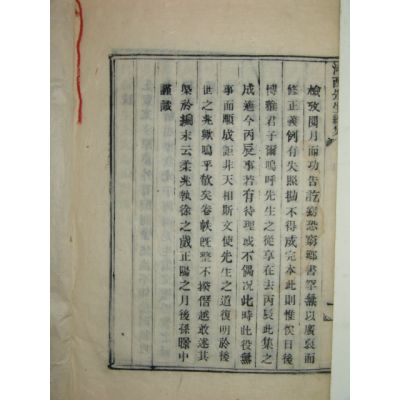 檢攷閱月而功告訖窮恐窮鄕書罕無以廣裒而
修正義例有失照勘不得咸完本此則惟俟日後
博雅君子爾嗚呼先生之從享在去丙辰此集之
成適今丙辰事若有待理或不偶况此時此役無
事而順成詎非天相斯文使先生之道復明於後
世之兆歟嗚乎欷矣卷帙旣整不揆僭越敢述其
槩於編末云柔兆執徐之歲正陽之月後孫 中
謹識